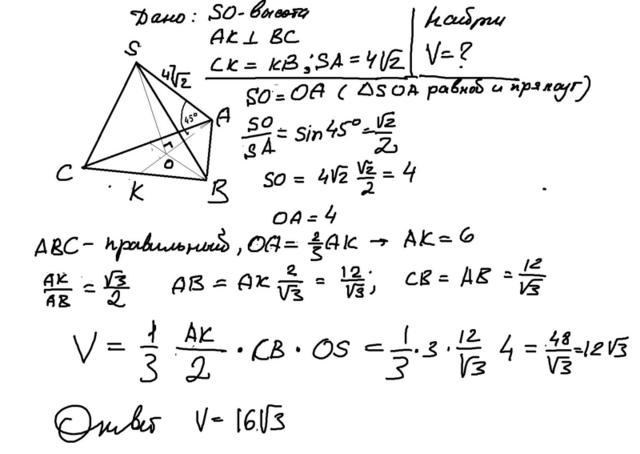 Дано: SO-высота
AK ⊥ BC
CK = KB; SA = 4√2
Найти
V = ?
S
4√2
45°
A
C
O
K
B
SO = OA ( △SOA равноб и прямоуг)
SO/SA = sin 45° = √2/2
SO = 4√2 √2/2 = 4
OA = 4
ABC - правильный, OA = 2/3 AK → AK = 6
AK/AB = √3/2 AB = AK 2/√3 = 12/√3; CB = AB = 12/√3
V = 1/3 AK/2 · CB · OS = 1/3 · 3 · 12/√3 4 = 48/√3 = 12√3
Ответ V = 16√3